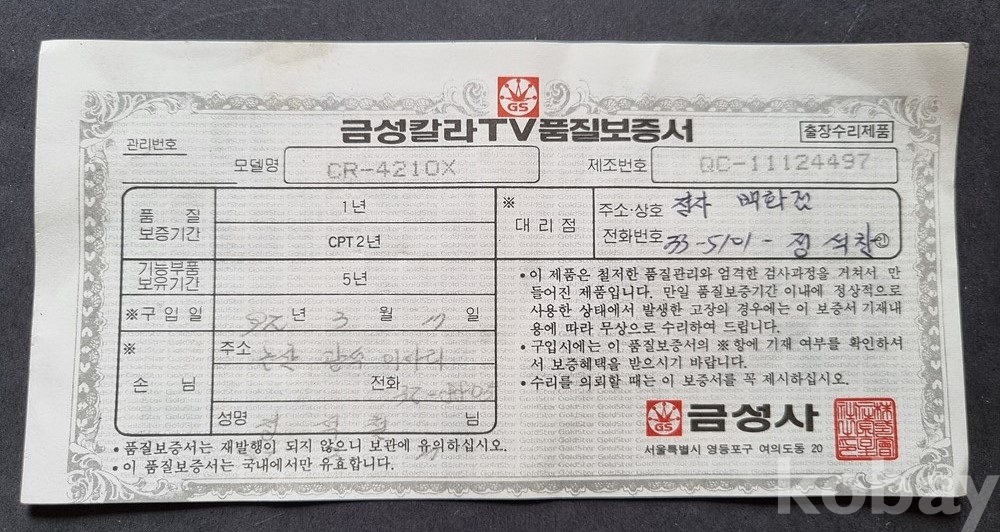 GS
금성칼라TV품질보증서
출장수리제품
관리번호
모델명 CR-4210X
제조번호 QC-11124497
품질보증기간
1년
CPT2년
기능부품보유기간 5년
※구입일 92년 3월 17일
※
손님
주소 논산
전화
성명 님
※
대리점
주소·상호 전자 백화점
전화번호 33-5101-정석창 ㊞
• 이 제품은 철저한 품질관리와 엄격한 검사과정을 거쳐서 만
들어진 제품입니다. 만일 품질보증기간 이내에 정상적으로
사용한 상태에서 발생한 고장의 경우에는 이 보증서 기재내
용에 따라 무상으로 수리하여 드립니다.
• 구입시에는 이 품질보증서의 ※항에 기재 여부를 확인하셔
서 보증혜택을 받으시기 바랍니다.
• 수리를 의뢰할 때는 이 보증서를 꼭 제시하십시오.
GS 금성사
서울특별시 영등포구 여의도동 20
• 품질보증서는 재발행이 되지 않으니 보관에 유의하십시오.
• 이 품질보증서는 국내에서만 유효합니다.
kobay